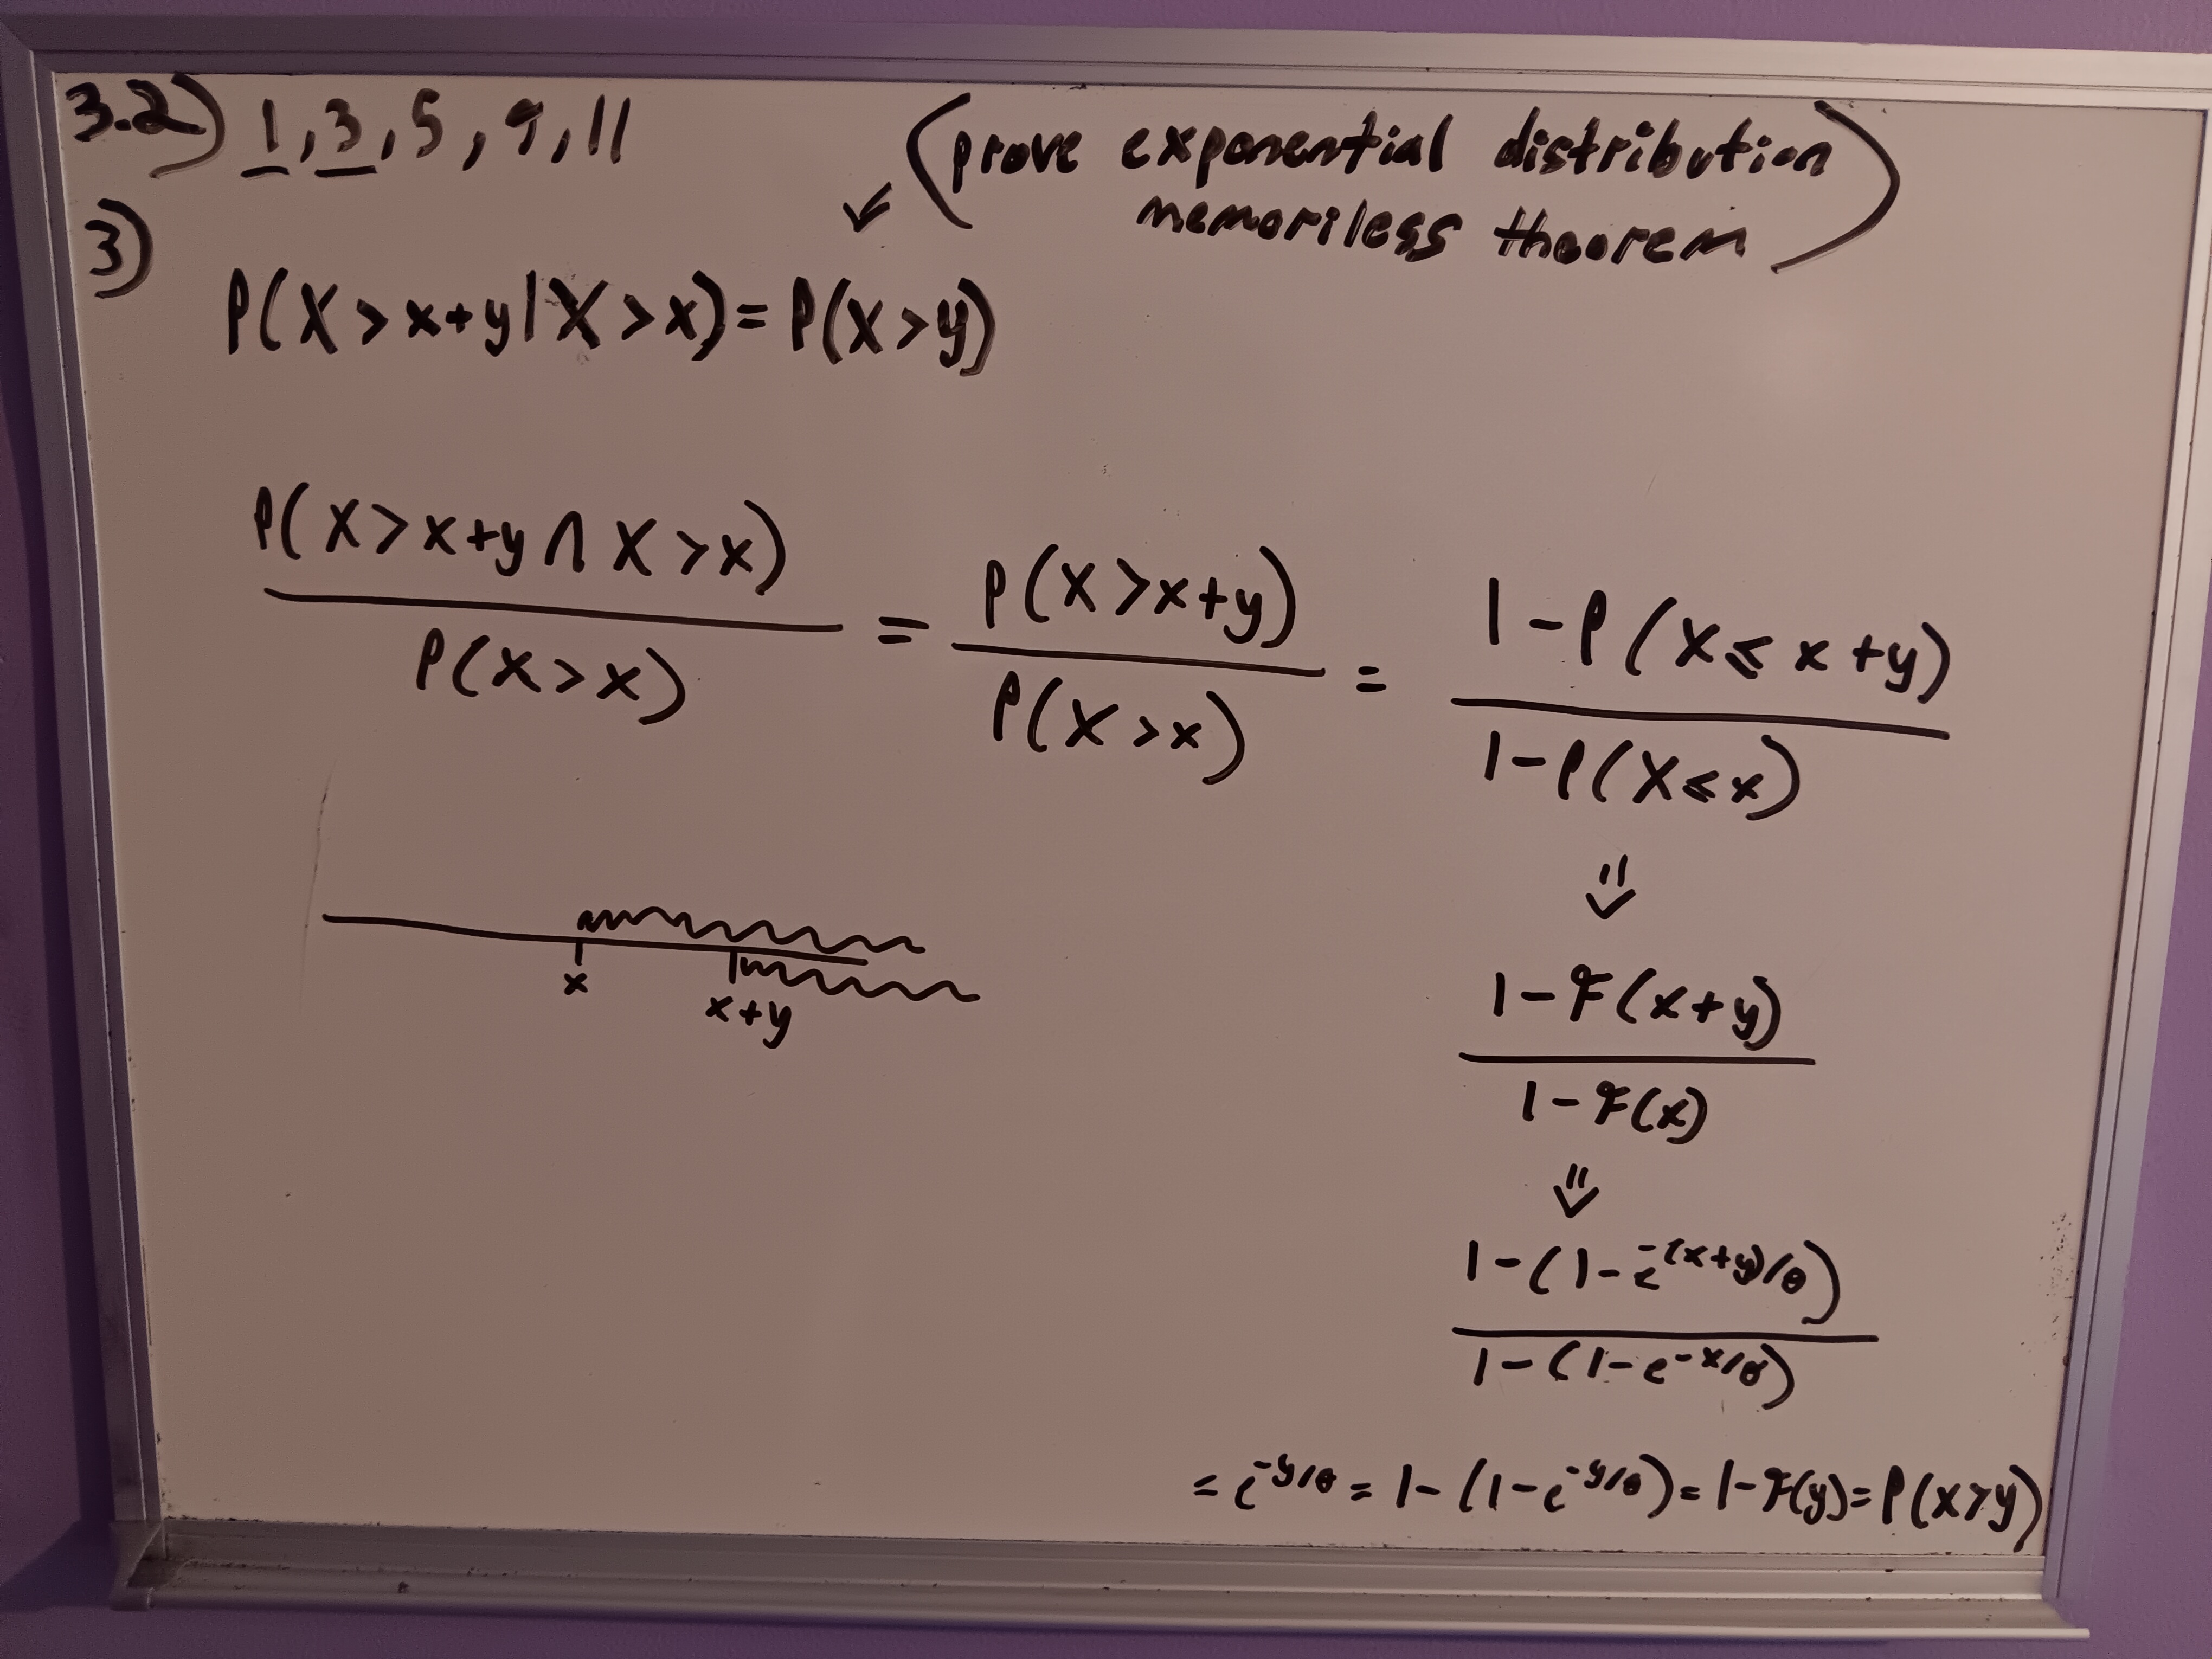 3.2) 1, 3, 5, 9, 11
(prove exponential distribution
memoriless theorem)
3)
P(X > x+y | X > x) = P(X > y)
P(X > x+y ∩ X > x) / P(X > x) = P(X > x+y) / P(X > x) = 1 - P(X ≤ x+y) / 1 - P(X ≤ x)
x
x+y
1 - F(x+y)
1 - F(x)
1 - (1 - e^-(x+y)/θ)
1 - (1 - e^-x/θ)
= e^-y/θ = 1 - (1 - e^-y/θ) = 1 - F(y) = P(X > y)